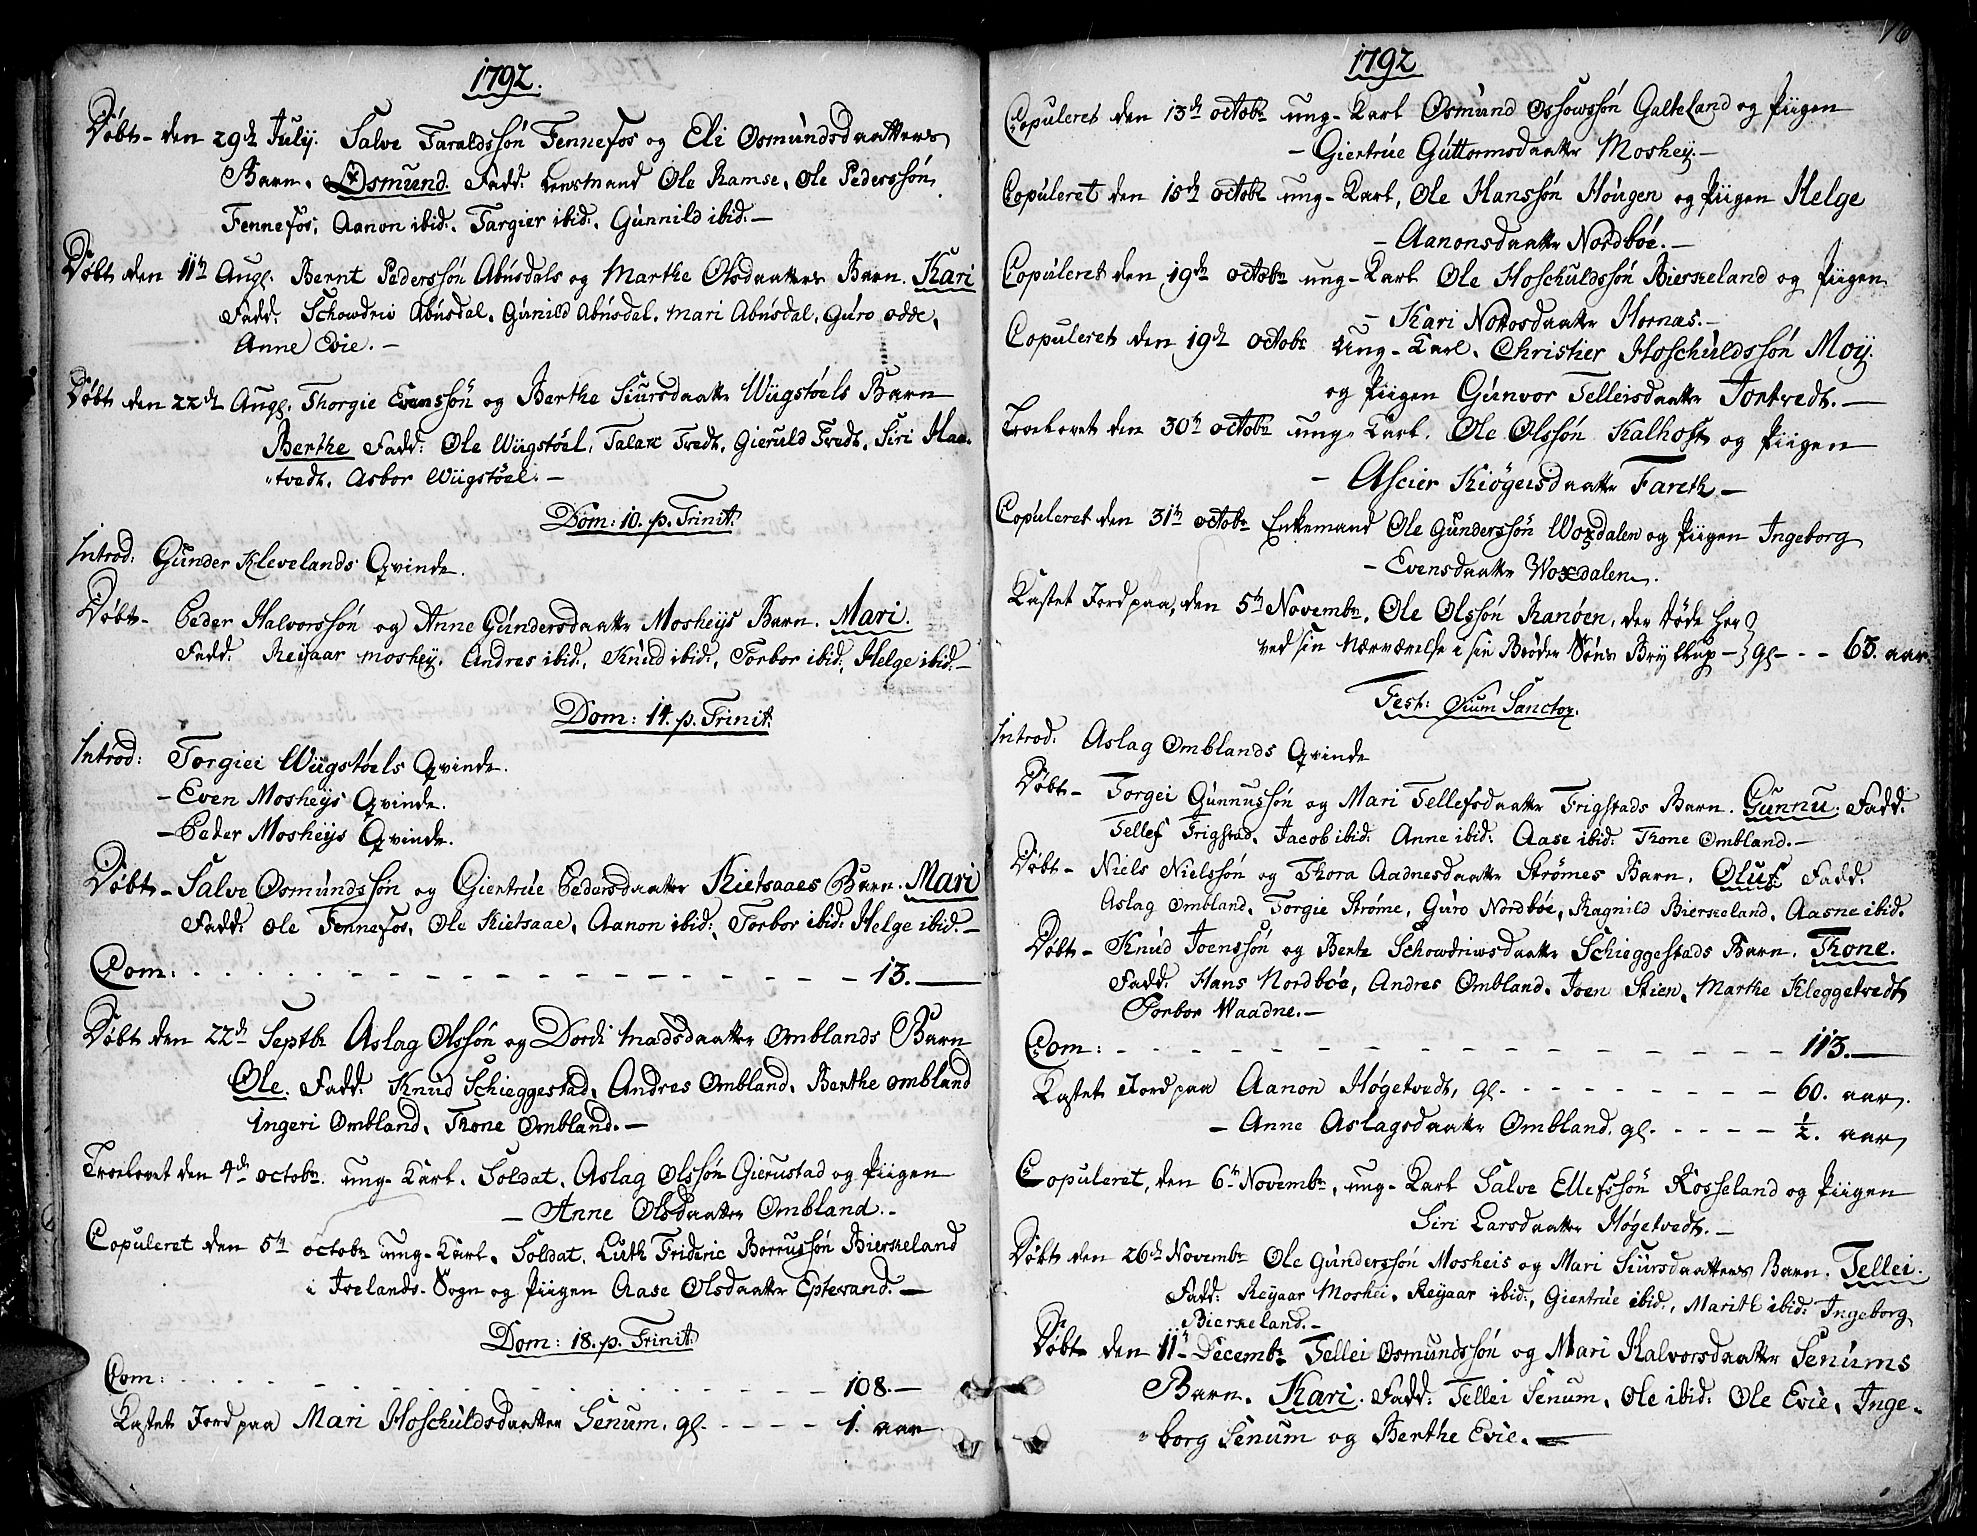 1792.
Døbt den 29de Julij. Salve Taraldssøn Fennefos og Eli Osmundsdaatters
Barn. Osmund. Fadd: Lensmand Ole Ramse, Ole Pederssøn
Fennefos, Aanon ibid:, Targier ibid:, Gunnild ibid: —
Døbt den 11te Aug. Bernt Pederssøn Abusdals og Marthe Olsdaatters Barn. Kari
Fadd: Schowdrii Abusdal, Gunild Abusdal, Mari Abusdal, Guro odde,
Anne Evie. —
Døbt den 22de Aug. Thorgie Evenssøn og Berthe Siursdaattr Wiigstøels Barn
Berthe Fadd: Ole Wiigstøel, Talak Tvedt, Gieruld Tvedt, Siri Haa-
"tvedt, Asbor Wiigstøel. —
Dom: 10. p. Trinit:
Introd: Gunder Klevelands Qvinde.
Døbt - Peder Halvorssøn og Anne Gundersdaattr Mosheys Barn. Mari.
Fadd: Reijaar Moshey, Andres ibid:, Knud ibid:, Torbor ibid:, Helge ibid: —
Dom: 14. p. Trinit:
Introd: Torgiei Wiigstøels Qvinde.
— Even Mosheijs Qvinde.
— Peder Mosheijs Qvinde.
Døbt - Salve Osmundssøn og Giertrue Pedersdaatter Rietsaaes Barn. Mari
Fadd: Ole Fennefos, Ole Rietsaae, Aanon ibid:, Torbor ibid: Helge ibid: —
Com: - - - 13. —
Døbt den 22de Septbr Aslag Olssøn og Dordi Madsdaatter Omblands Barn
Ole. Fadd: Knud Schieggestad, Andres Ombland, Berthe Ombland
Ingeri Ombland, Thone Ombland. —
Troelovet den 4de octobr. ung-Karl, Soldat, Aslag Olssøn Gierustad og Piigen
— Anne Olsdaatter Ombland. —
Copuleret den 5te octobr ung-Karl, Soldat, Luth Frideric Borrussøn Bierkeland
i Ivelands-Sogn og Piigen Aase Olsdaatter Eptevand. —
Dom: 18. p. Trinit:
Com: - - - 108. —
Kastet Jord paa Mari Hoschuldsdaatter Senum, gl. - - - 1. aar
76
1792
Copuleret den 13de octobr ung-Karl Osmund Ossowssøn Galteland og Piigen
— Giertrue Guttormsdaattr Moshey. —
Copuleret den 15de octobr ung-Karl, Ole Hanssøn Hougen og Piigen Helge
— Aanonsdaattr Nordbøe. —
Copuleret den 19de octobr ung-Karl Ole Hoschuldssøn Bierkeland og Piigen
— Kari Nottosdaattr Hornæs. —
Copuleret den 19de octobr Ung-Karl, Christier Hoschuldssøn Moij.
og Piigen Gunvor Telleisdaattr Tortvedt. —
Troelovet den 30te octobr ung-Karl, Ole Olssøn Kalhoft og Piigen
— Ascier Kiøgeisdaattr Fareth —
Copuleret den 31te octobr Enkemand Ole Gunderssøn Woxdalen og Piigen Ingeborg
— Evensdaattr Woxdalen.
Kastet Jord paa, den 5te Novembr, Ole Olssøn Ranøen, der døde her
ved sin Nærværelse i sin Broder Søns Bryllup — gl - - - 63. aar
Fest: Oium Sanctor.
Introd: Aslag Omblands Qvinde
Døbt - Torgei Gunnussøn og Mari Tellefsdaattr Frigstads Barn. Gunnu. Fadd:
Tellef Frigstad, Jacob ibid: Anne ibid: Aase ibid: Thone Ombland. —
Døbt - Niels Nielssøn og Thora Aadnesdaattr Strømes Barn. Oluf Fadd:
Aslag Ombland, Torgie Strøme, Guro Nordbøe, Ragnild Bierkeland, Aasne ibid.
Døbt - Knud Joenssøn og Berte Schowdriwsdaattr Schieggestads Barn. Thone.
Fadd: Hans Nordbøe, Andres Ombland, Joen Stien, Marthe Kleggetvedt
Torbor Waadne. —
Com: - - - 113. —
Kastet Jord paa Aanon Høgetvedt, gl. - - - 60. aar.
— Anne Aslagsdaattr Ombland, gl. - - - ½. aar
Copuleret, den 6te Novembr, ung-Karl Salve Ellefssøn Rosseland og Piigen
Siri Larsdaatter Høgetvedt. —
Døbt den 26de Novembr Ole Gunderssøn Mosheis og Mari Siursdaatters Barn. Tellei.
Fadd: Reijaar Moshei, Reijaar ibid:, Giertrue ibid:, Marith ibid: Ingeborg
Bierkeland. —
Døbt den 11te Decembr Tellei Osmundssøn og Mari Halvorsdaatter Senums
Barn. Kari. Fadd: Tellei Senum, Ole ibid: Ole Evie, Inge-
"borg Senum og Berthe Evie. —